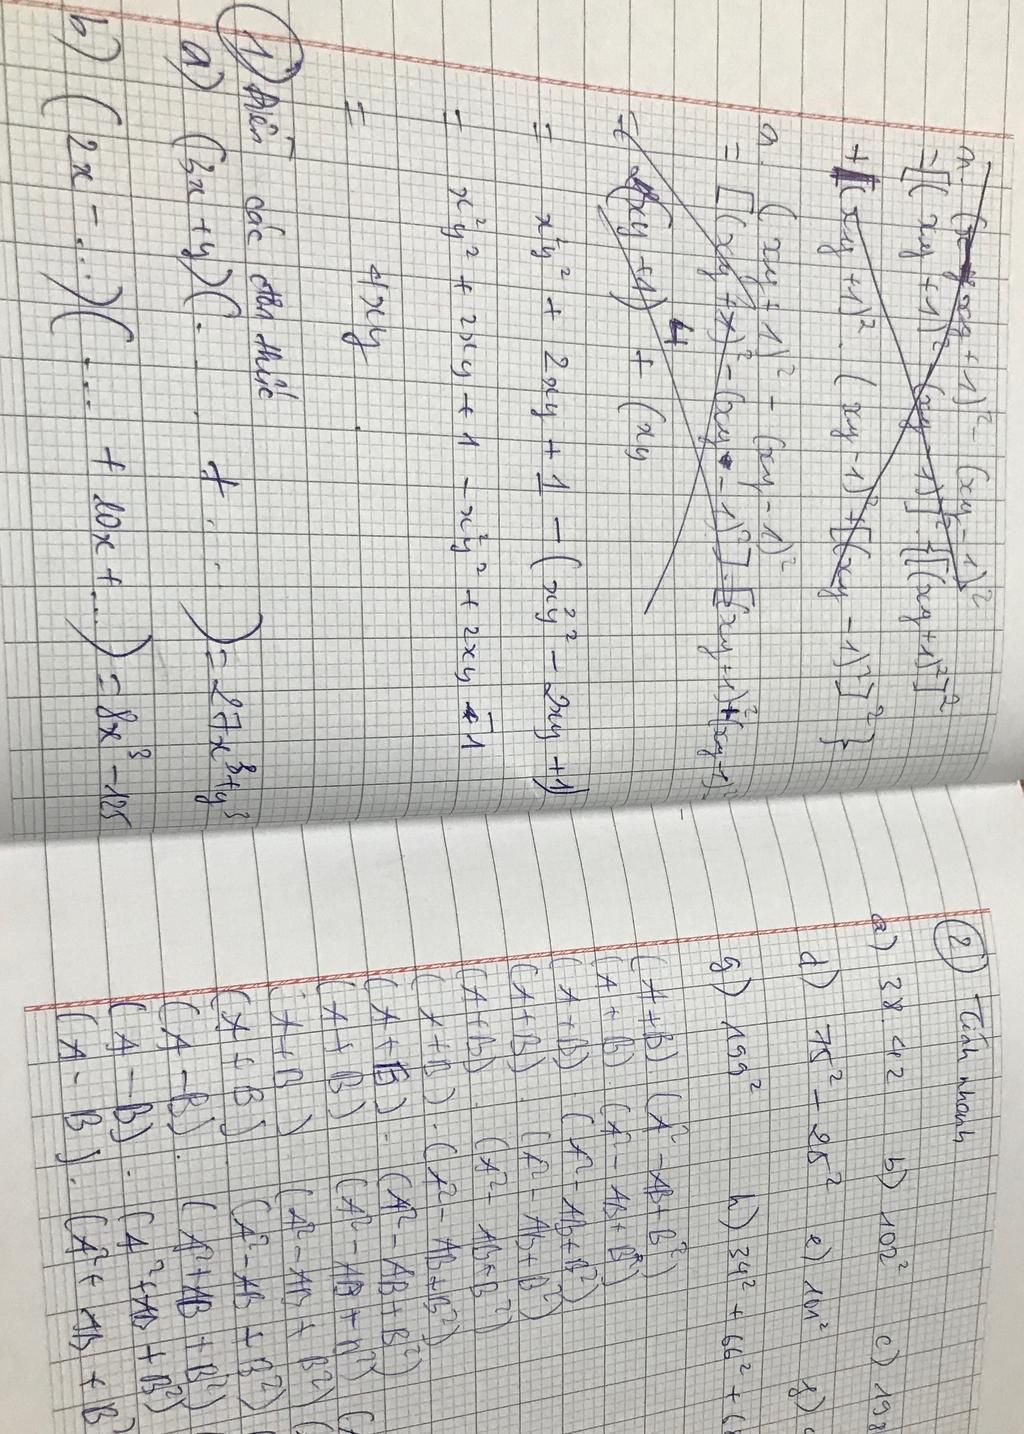 = [(xy + 1)² - (xy - 1)²]² . {[(xy+1)²]²
+ (xy + 1)² . (xy - 1)² + [(xy - 1)²]²}
a. (xy + 1)² - (xy - 1)²
= x²y² + 2xy + 1 - (x²y² - 2xy + 1)
= x²y² + 2xy + 1 - x²y² + 2xy - 1
= 4xy
1) Điền các đơn thức
a) (3x + y)(... + ...) = 27x³ + y³
b) (2x - ...)(... + 10x + ...) = 8x³ - 125
2) Tính nhanh
a) 38 . 42 b) 102² c) 198
d) 75² - 25² e) 101² f)
g) 199² h) 34² + 66² +
(A + B) (A² - AB + B²)
(A + B) . (A² - AB + B²)
(A + B) . (A² - AB + B²)
(A + B) . (A² - AB + B²)
(A + B) . (A² - AB + B²)
(A + B) . (A² - AB + B²)
(A + B) . (A² - AB + B²)
(A + B) . (A² - AB + B²)
(A + B) (A² - AB + B²)
(A + B) (A² - AB + B²)
(A - B) . (A² + AB + B²)
(A - B) . (A² + AB + B²)
(A - B) . (A² + AB + B²